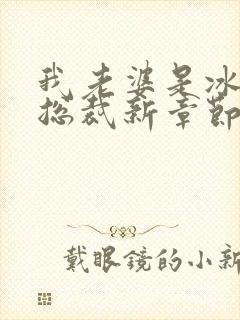 我老婆是冰
总裁新章节
戴眼镜的小新